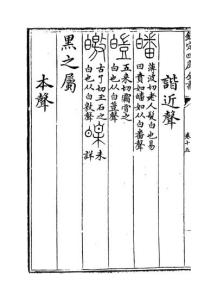 欽定四庫全書 卷十五
諧近聲
皤 蒲波切老人髮白也易
曰賁如皤如从白番聲
皚 五來切霜雪之
白也从白豈聲
皦 古了切玉石之
白也从白敫聲
未
詳
黑之屬
本聲